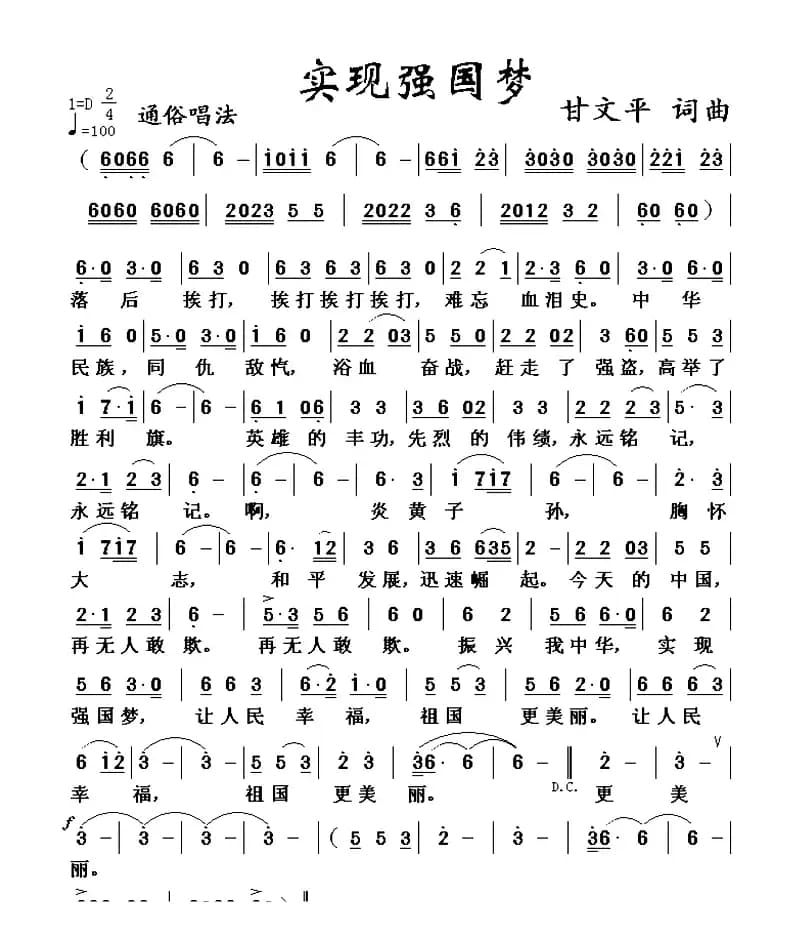 实现强国梦
1=D 2/4
♩=100
通俗唱法
甘文平 词曲
(6066 6 | 6 - | i0ii 6 | 6 - | 66i 23 | 3030 3030 | 22i 23 |
6060 6060 | 2023 5 5 | 2022 3 6 | 2012 3 2 | 60 60) |
6·0 3·0 | 6 3 0 | 63 63 | 63 0 | 2 2 1 | 2·3 50 | 3·0 6·0 |
落后 挨打, 挨打挨打挨打, 难忘 血泪史。 中华
i 6 0 | 5·0 3·0 | i 6 0 | 2 2 03 | 5 5 0 | 2 2 02 | 3 60 | 5 5 3 |
民族, 同仇 敌忾, 浴血 奋战, 赶走了 强盗, 高举了
i 7·i | 6 - | 6 - | 6 i 06 | 3 3 | 3 6 02 | 3 3 | 2 2 2 3 | 5·3 |
胜利旗。 英雄的丰功, 先烈的伟绩, 永远铭记,
2·1 2 3 | 6 - | 6 - | 6 - | 6·3 | i 7i7 | 6 - | 6 - | 2·3 |
永远铭记。 啊, 炎黄子孙, 胸怀
i 7i7 | 6 - | 6 - | 6· 12 | 3 6 | 36 635 | 2 - | 2 2 03 | 5 5 |
大志, 和平发展, 迅速崛起。 今天的中国,
2·1 2 3 | 6 - | 5·3 5 6 | 6 0 | 6 2 | 5 6 6·0 | 6 2 |
再无人敢欺。 再无人敢欺。 振兴我中华, 实现
5 6 3·0 | 6 6 3 | 6·2 i·0 | 5 5 3 | 6 2 | i·0 | 6 6 3 |
强国梦, 让人民幸福, 祖国更美丽。 让人民
6 i2 | 3 - | 3 - | 5 5 3 | 2· 2 | 36· 6 | 6 - ‖ 2 2 | 3 - |
幸福, 祖国更美丽。 D.C. 更美
f 3 - | 3 - | 3 - | 3 - | (5 5 3 | 2 - | 3 - | 36· 6 | 6 - |
丽。